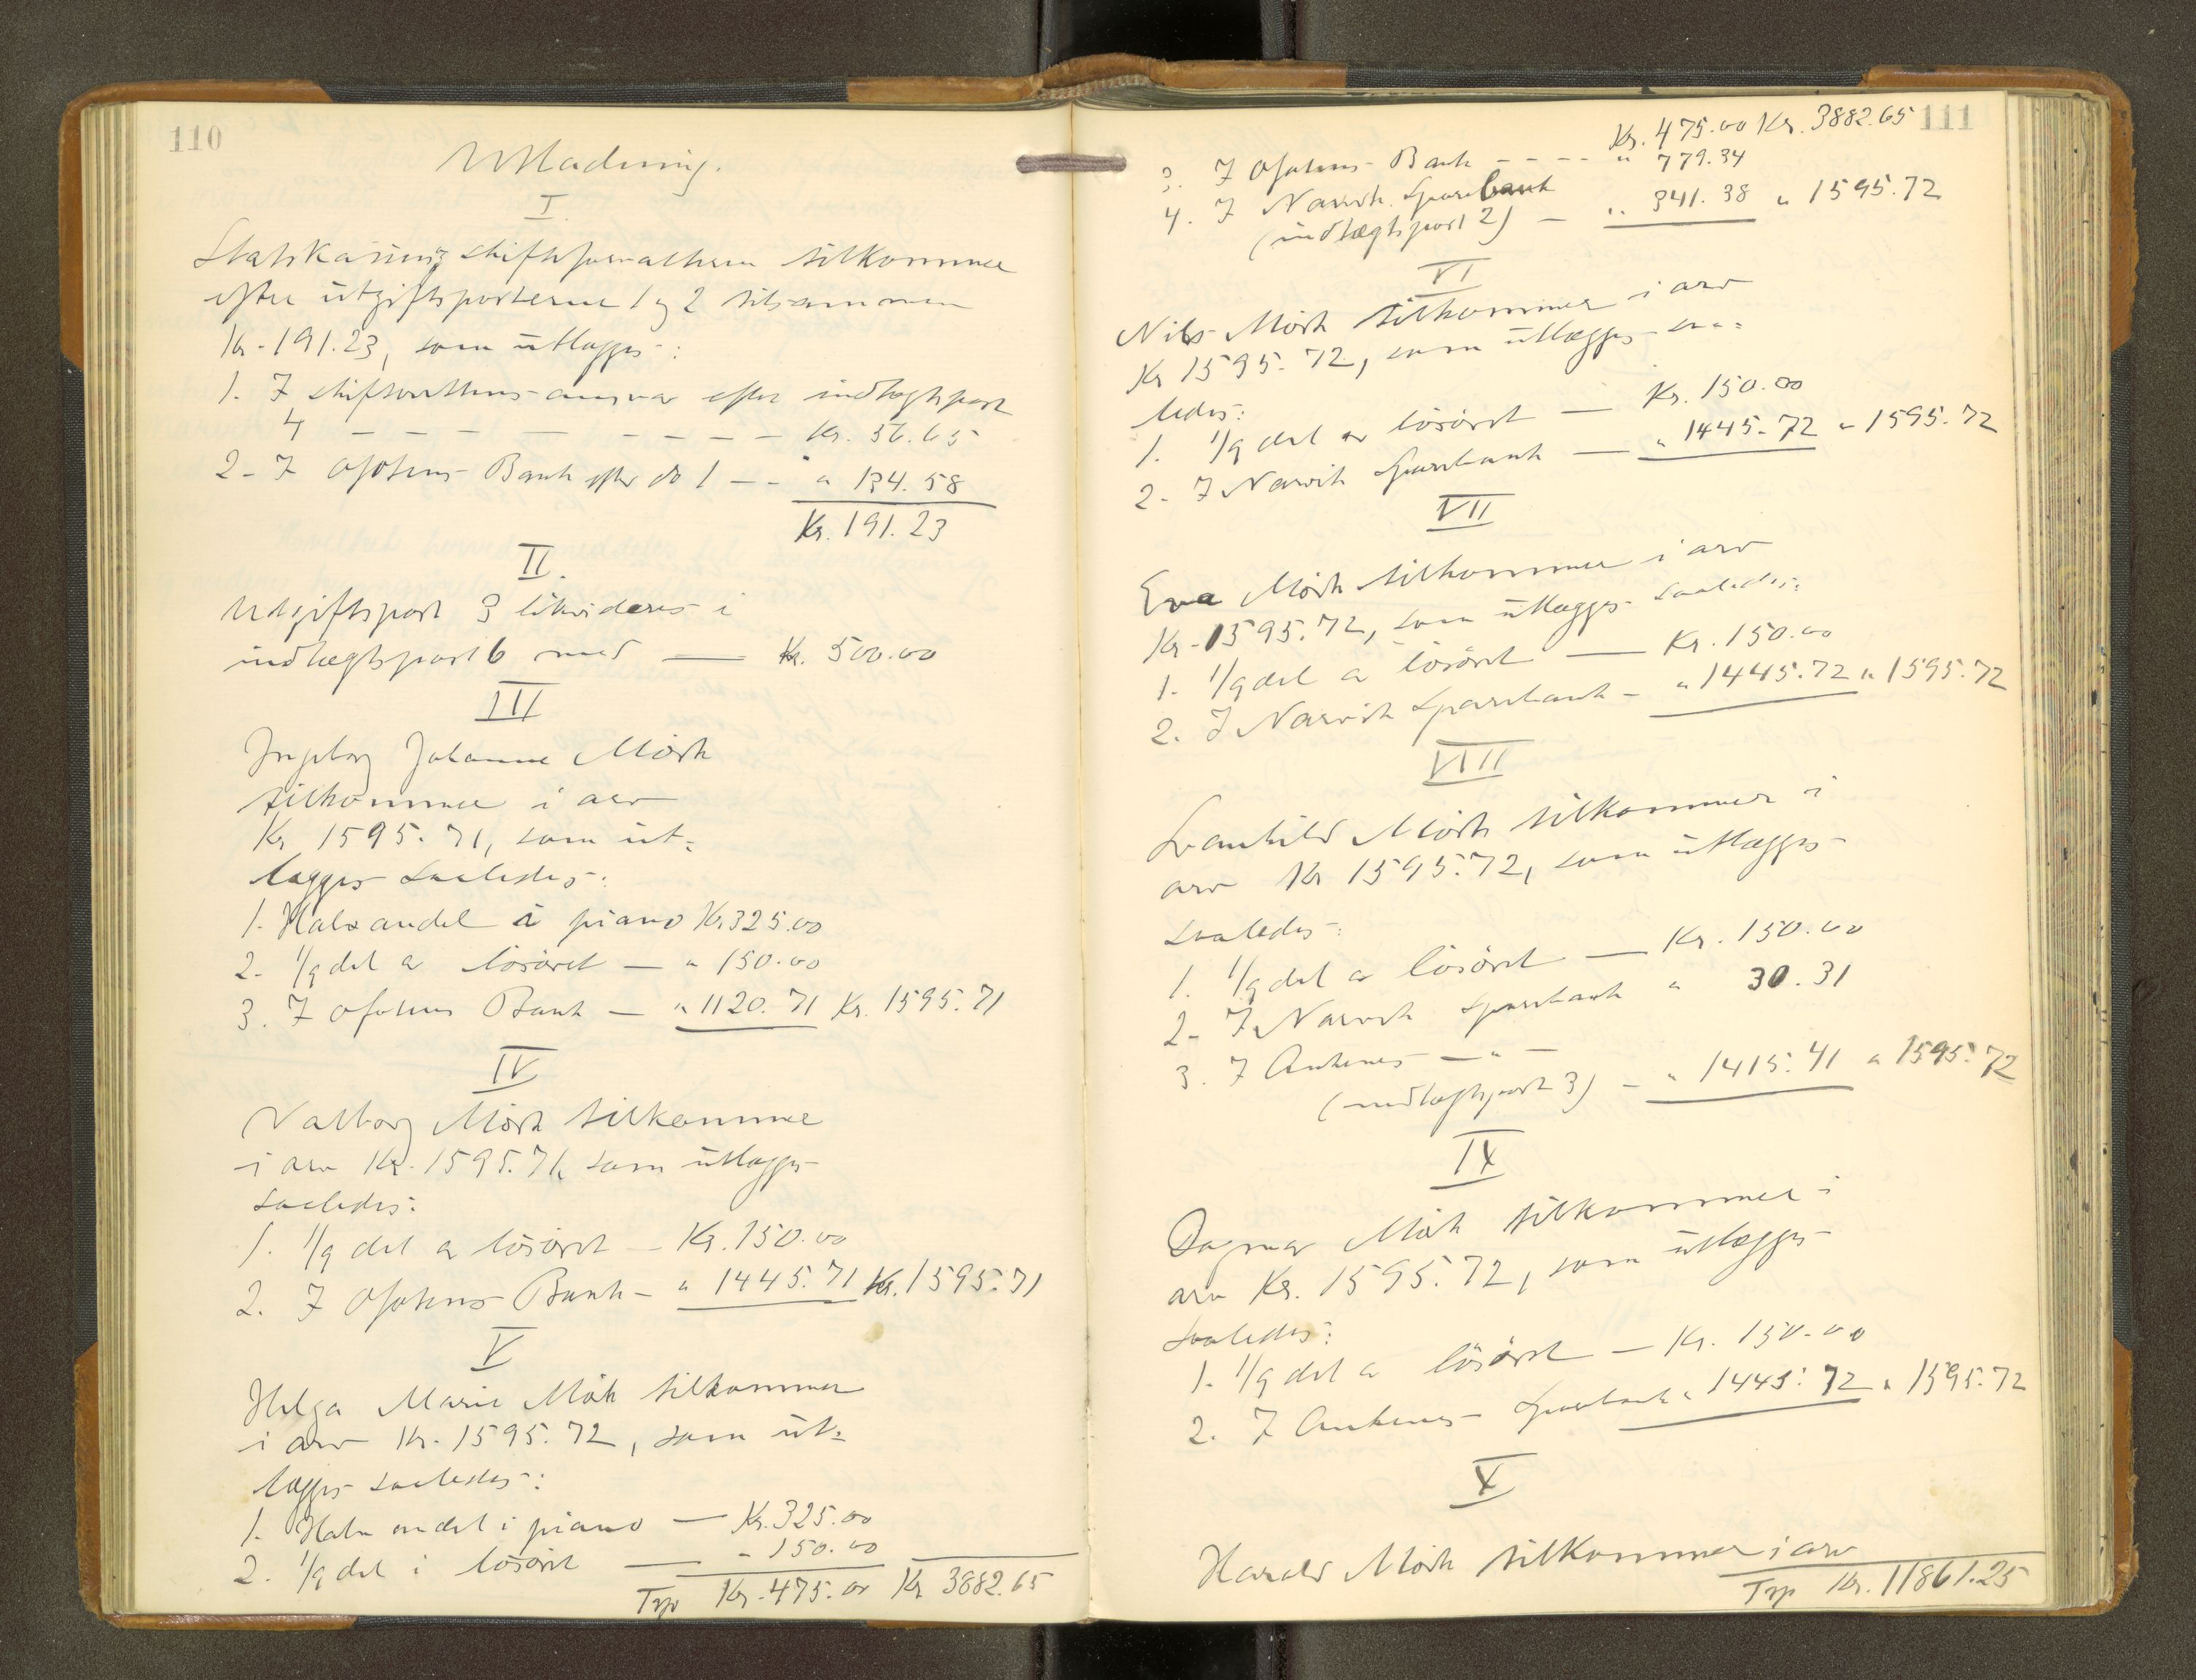 110
Utlodning.
I.
Statskassens skiftsforvalteren tilkommer
efter utgiftsposterne 1 og 2 tilsammen
Kr. 191.23, som utlægges:
1. I skifterettens ansvar efter indtægtspost
4 — — — — — — — — Kr. 56.65
2. I Ofotens Bank efter do 1 — - " 134.58
Kr. 191.23
II.
Utgiftspost 3 likvideres i
indtægtspost 6 med — Kr. 500.00
III
Ingeborg Johanne Mörk
tilkommer i arv
Kr 1595.71, som ut-
lægges saaledes:
1. Halv andel i piano Kr. 325.00
2. 1/9 del av lösöret — " 150.00
3. I Ofotens Bank — " 1120.71 Kr. 1595.71
IV
Valborg Mörk tilkommer
i arv Kr. 1595.71, som utlægges
saaledes:
1. 1/9 del av lösöret — Kr. 150.00
2. I Ofotens Bank — " 1445.71 Kr. 1595.71
V
Helga Marie Mörk tilkommer
i arv Kr. 1595.72, som ut-
lægges saaledes:
1. Halv andel i piano — Kr. 325.00
2. 1/9 del i lösöret — " 150.00
Trp Kr. 475.00 Kr 3882.65
111
Kr. 475.00 Kr. 3882.65
3. I Ofotens Bank - - - - " 779.34
4. I Narvik Sparebank
(indtægtspost 2) — " 341.38 " 1595.72
VI
Nils Mörk tilkommer i arv
Kr 1595.72, som utlægges saa-
ledes:
1. 1/9 del av lösöret — Kr. 150.00
2. I Narvik Sparebank — " 1445.72 " 1595.72
VII
Eva Mörk tilkommer i arv
Kr. 1595.72, som utlægges saaledes:
1. 1/9 del av lösöret — Kr. 150.00
2. I Narvik Sparebank — " 1445.72 " 1595.72
VIII
Svanhild Mörk tilkommer i
arv Kr 1595.72, som utlægges
saaledes:
1. 1/9 del av lösöret — Kr. 150.00
2. I Narvik Sparebank " 30.31
3. I Ankenes — " —
(indtægtspost 3) — " 1415.41 " 1595.72
IX
Dagmar Mörk tilkommer i
arv Kr. 1595.72, som utlægges
saaledes:
1. 1/9 del av lösöret — Kr. 150.00
2. I Ankenes Sparebank " 1445.72 " 1595.72
X
Harald Mörk tilkommer i arv
Trp Kr. 11861.25